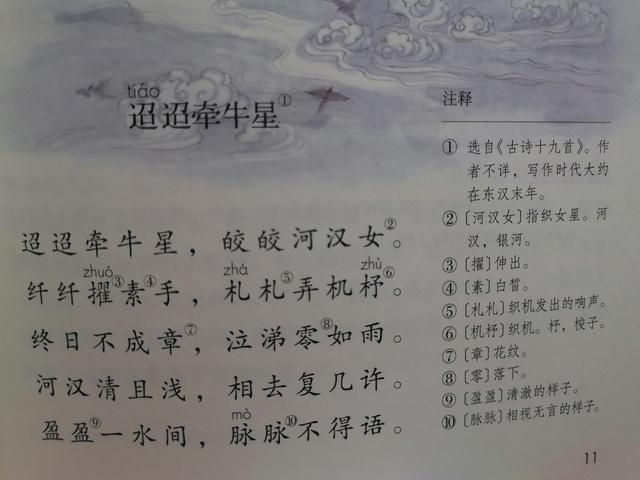 tiáo
迢迢牵牛星①
迢迢牵牛星，皎皎河汉女②。
zhuó zhá zhù
纤纤擢③素④手，札札⑤弄机杼⑥。
终日不成章⑦，泣涕零⑧如雨。
河汉清且浅，相去复几许。
mò
盈盈⑨一水间，脉脉⑩不得语。
注释
① 选自《古诗十九首》。作
者不详，写作时代大约
在东汉末年。
②〔河汉女〕指织女星。河
汉，银河。
③〔擢〕伸出。
④〔素〕白皙。
⑤〔札札〕织机发出的响声。
⑥〔机杼〕织机。杼，梭子。
⑦〔章〕花纹。
⑧〔零〕落下。
⑨〔盈盈〕清澈的样子。
⑩〔脉脉〕相视无言的样子。
11